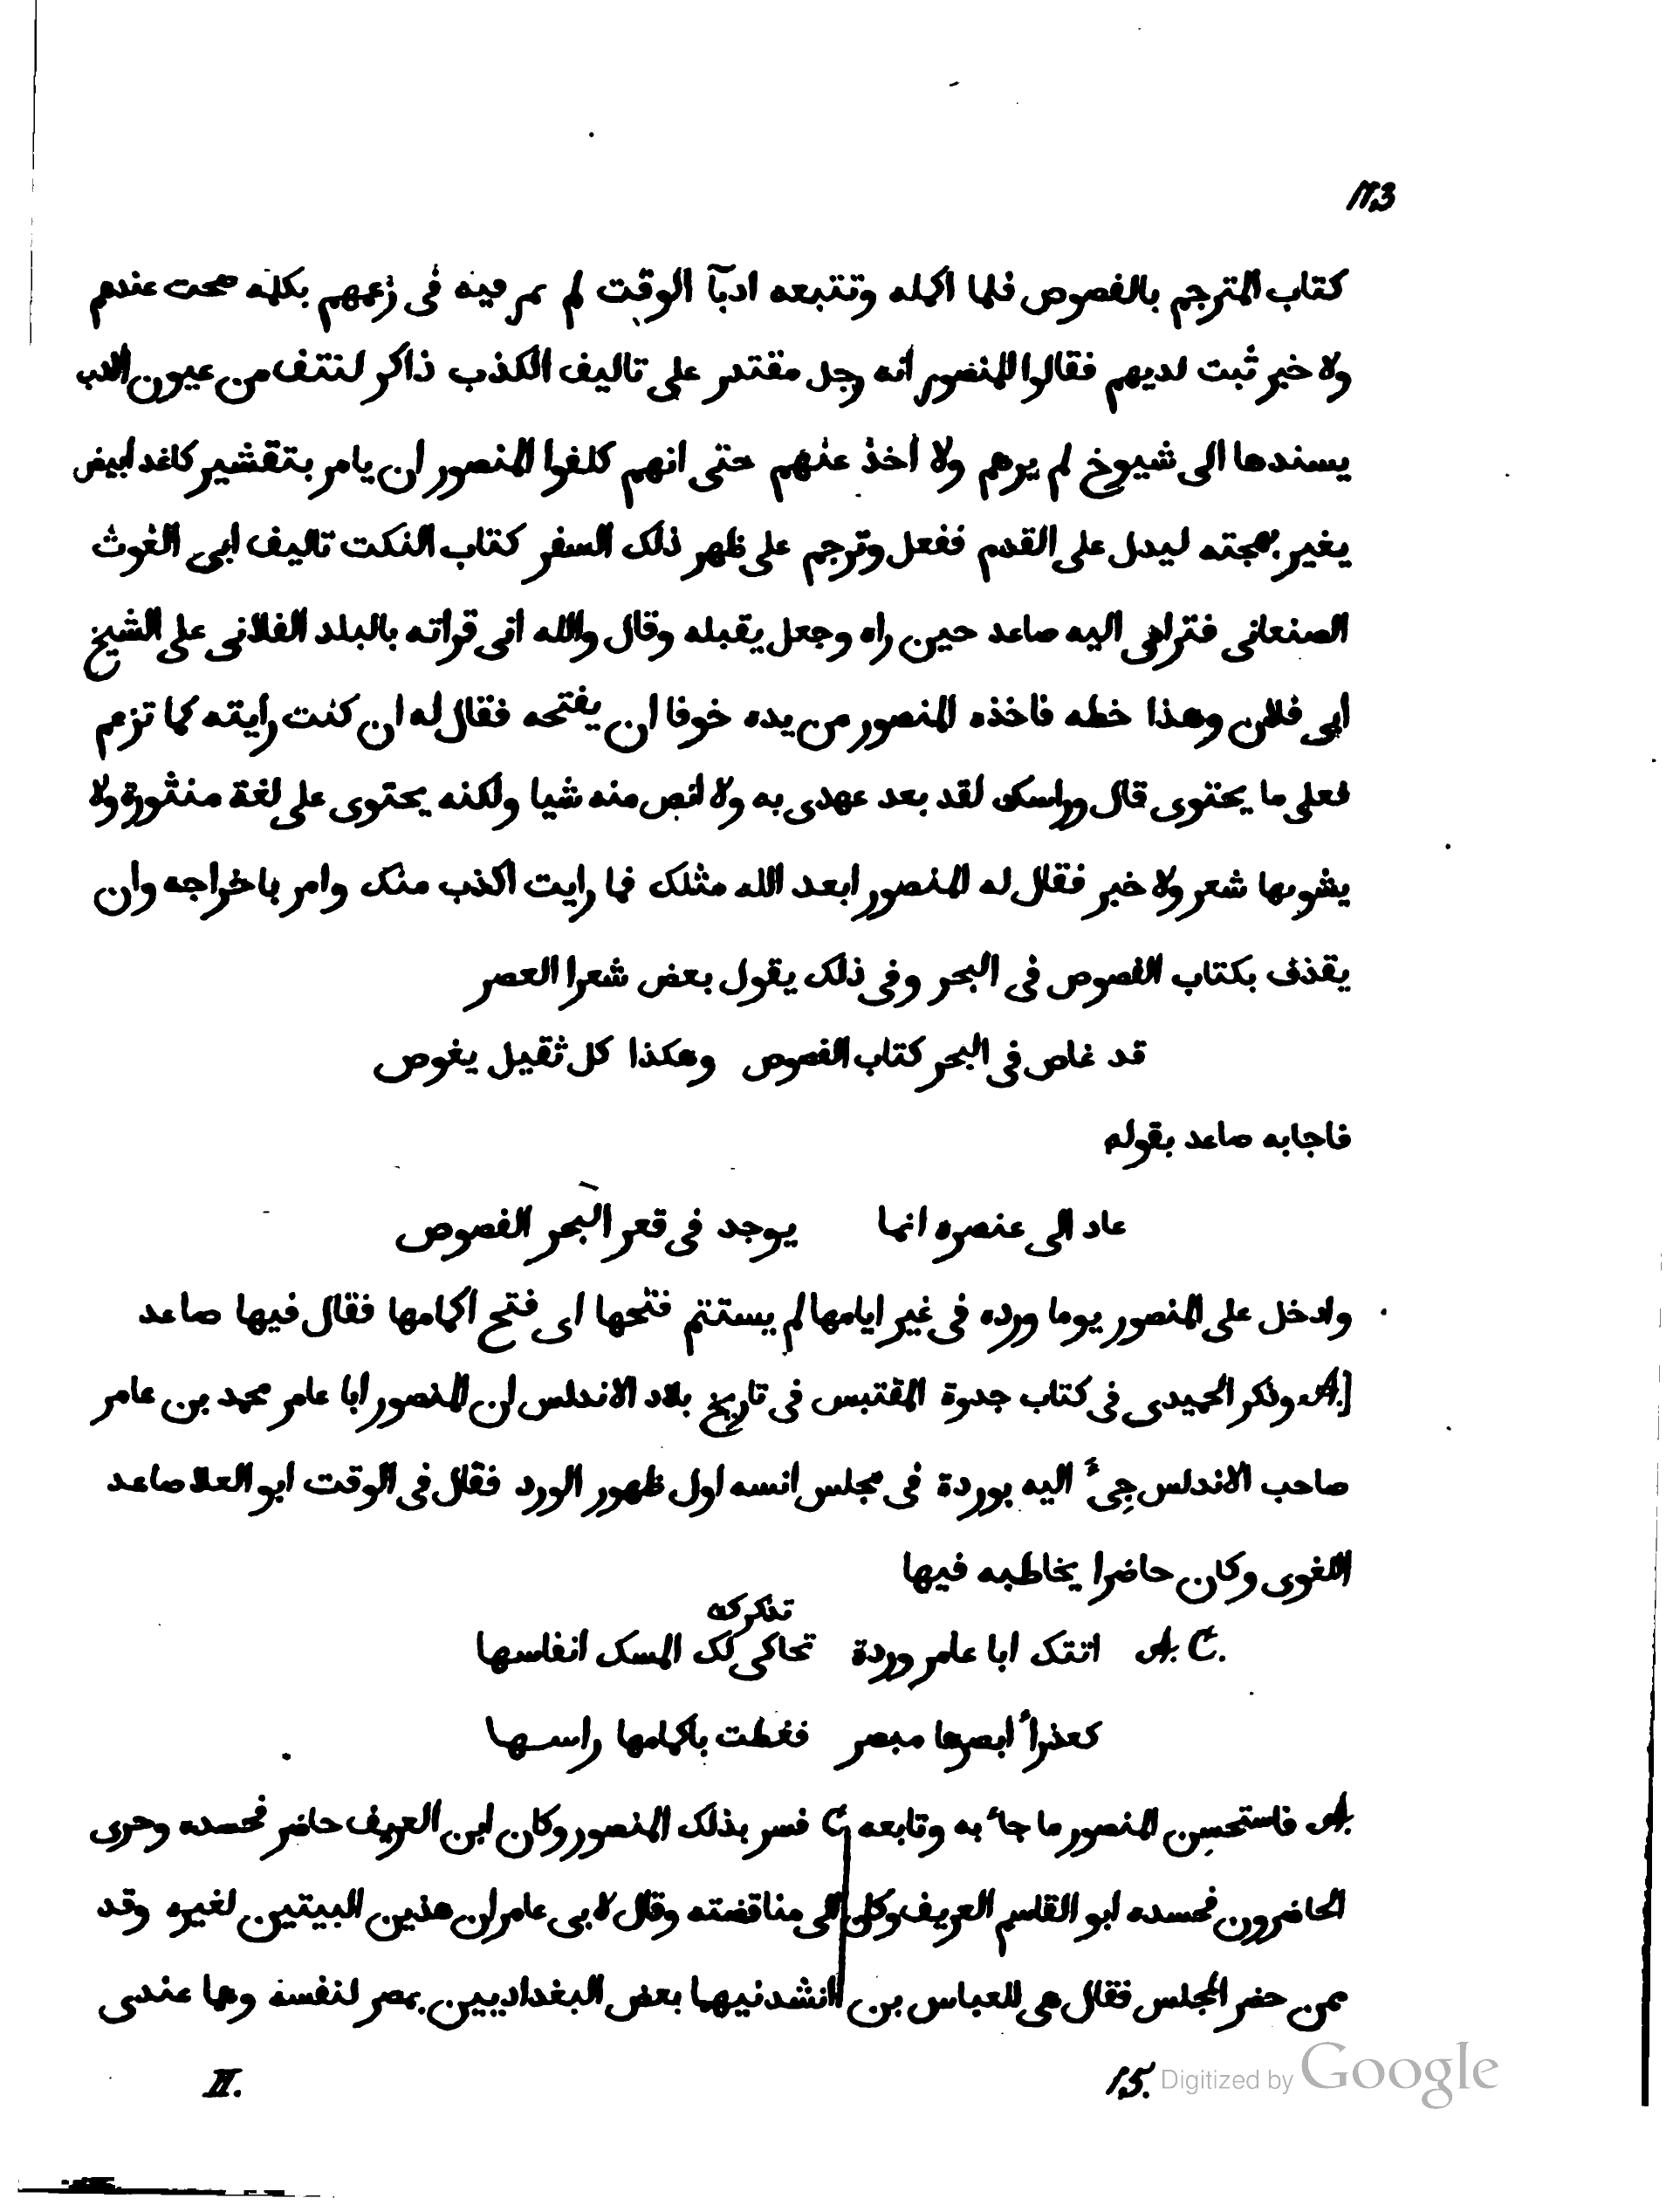 113
كتاب المترجم بالفصوص فلما اكمله وتتبعه ادبآ الوقت لم يمر فيه فى زعمهم بكلمة صحت عندهم
ولا خبر ثبت لديهم فقالوا للمنصور انه رجل مقتدر على تاليف الكذب ذاكر لنتف من عيون الادب
يسندها الى شيوخ لم يرهم ولا اخذ عنهم حتى انهم كلفوا المنصور ان يامر بتقشير كاغد ابيض
يغير بهجته ليدل على القدم ففعل وترجم على ظهر ذلك السفر كتاب النكت تاليف ابى الغوث
الصنعانى فترامى اليه صاعد حين راه وجعل يقبله وقال والله انى قراته بالبلد الفلانى على الشيخ
ابى فلان وهذا خطه فاخذه المنصور من يده خوفا ان يفتحه فقال له ان كنت رايته كما تزعم
فعلى ما يحتوى قال وراسك لقد بعد عهدى به ولا انص منه شيا ولكنه يحتوى على لغة منثورة ولا
يشوبها شعر ولا خبر فقال له المنصور ابعد الله مثلك فما رايت اكذب منك وامر باخراجه وان
يقذف بكتاب الفصوص فى البحر وفى ذلك يقول بعض شعرا العصر
قد غاص فى البحر كتاب الفصوص وهكذا كل ثقيل يغوص
فاجابه صاعد بقوله
عاد الى عنصره انما يوجد فى قعر البحر الفصوص
وادخل على المنصور يوما ورده فى غير ايامها لم يستتم فتحها اى فتح اكمامها فقال فيها صاعد
[A. وذكر الحميدى فى كتاب جدوة المقتبس فى تاريخ بلاد الاندلس ان المنصور ابا عامر محمد بن عامر
صاحب الاندلس جئ اليه بوردة فى مجلس انسه اول ظهور الورد فقال فى الوقت ابو العلا صاعد
اللغوى وكان حاضرا يخاطبه فيها
تذكركه
A. C. اتتك ابا عامر وردة تحاكى لك المسك انفاسها
كعذرأ ابصرها مبصر فغطت باكمامها راسها
A. فاستحسن المنصور ما جأ به وتابعه C فسر بذلك المنصور وكان ابن العريف حاضر فحسده وجرى
الحاضرون فحسده ابو القاسم العريف وكان الى مناقضته وقال لابى عامر ان هذين البيتين لغيره وقد
ممن حضر المجلس فقال هى للعباس بن انشدنيهما بعض البغداديين بمصر لنفسه وهما عندى
II.
15.
Digitized by Google